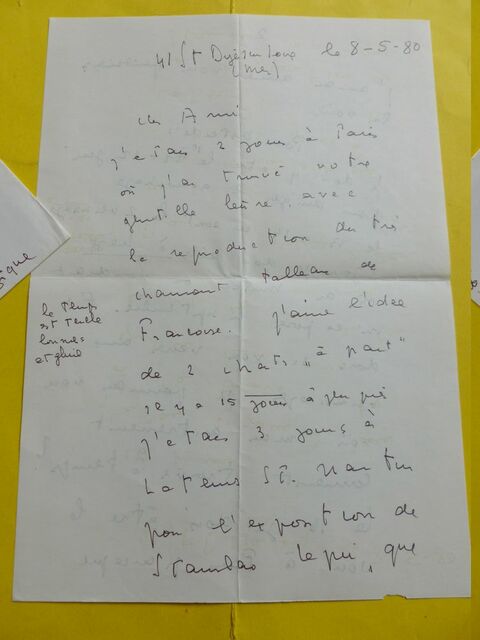 41 St Dyé sur Loire le 8-5-80
(Mer)
cher Ami
j'etais 2 jours à Paris
où j'ai trouvé votre
gentille lettre avec
la reproduction du très
charmant tableau de
Francoise. j'aime l'idée
de 2 chats "à part"
il y a 15 jours à peu près
j'etais 3 jours à
La St. Martin
pour l'exposition de
que
le temps
est
et pluie
que